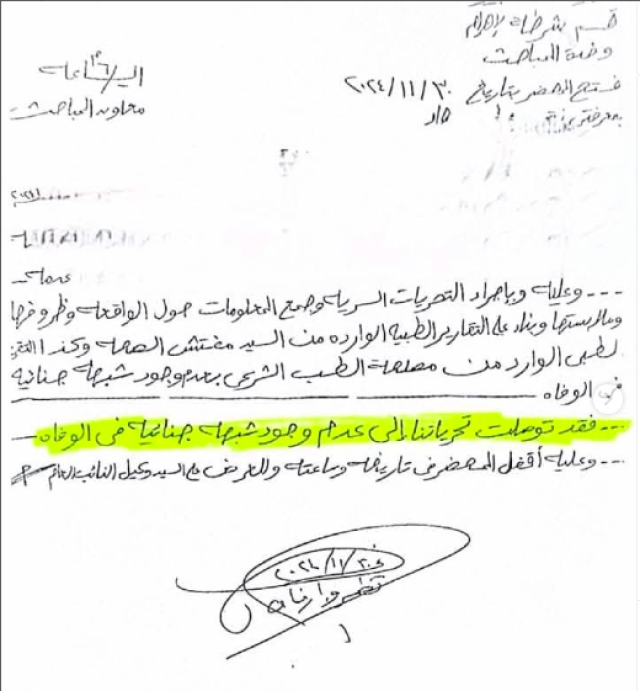 قسم شرطة الأهرام
وحدة المباحث
فتح المحضر بتاريخ ٢٠٢٤/١١/٣٠ الساعة
بمعرفتي نحن معاون المباحث
--- وعليه وبإجراء التحريات السرية وجمع المعلومات حول الواقعة وظروفها
وملابستها وبناء على التقارير الطبية الوارده من السيد مفتش الصحة وكذا التقرير
الطبى الوارد من مصلحة الطب الشرعى بعدم وجود شبهة جنائية
فى الوفاه
--- فقد توصلت تحرياتنا إلى عدم وجود شبهة جنائية فى الوفاه
--- وعليه أقفل المحضر فى تاريخه وساعته وللعرض على السيد وكيل النائب العام
٢٠٢٤/١١/٣٠
نظر وارفاق